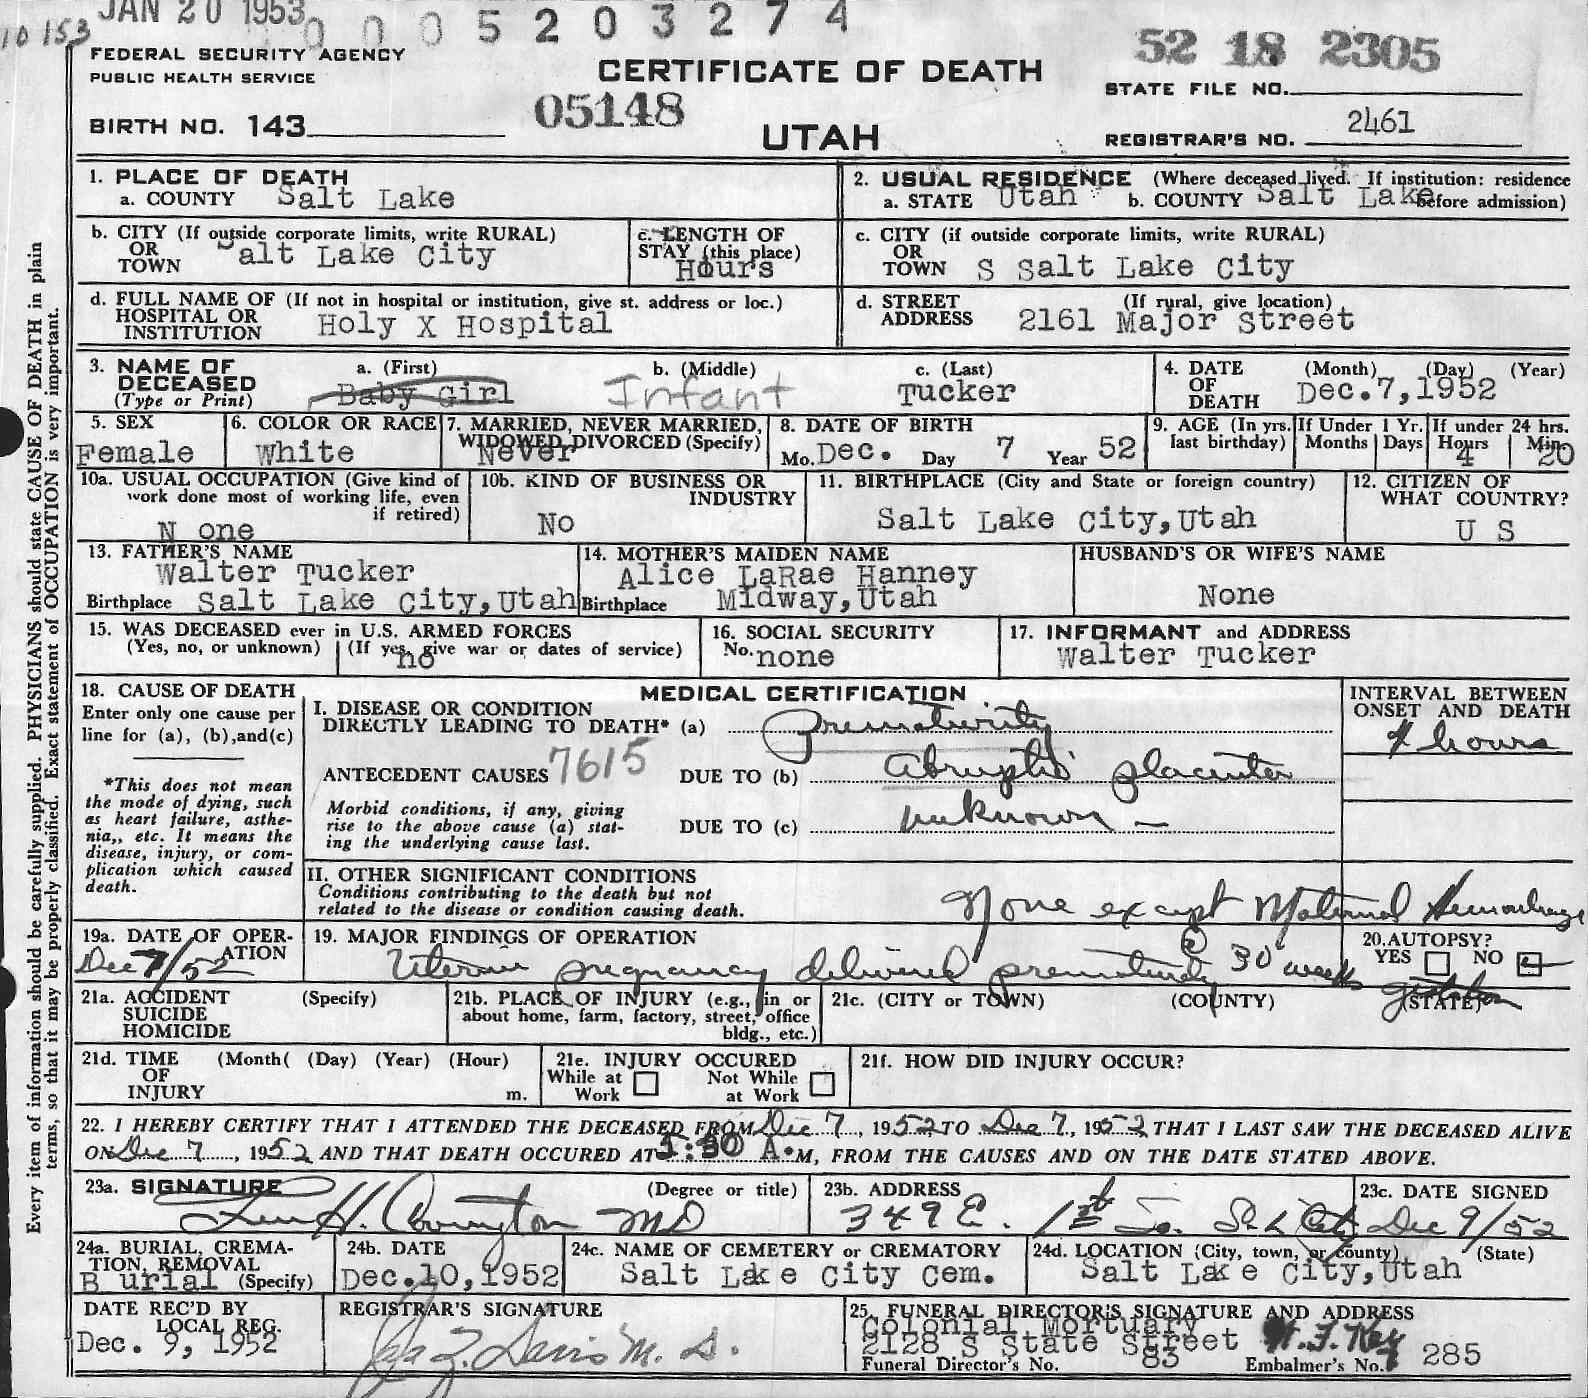 JAN 20 1953
10 153
0 0 0 5 2 0 3 2 7 4
52 18 2305
FEDERAL SECURITY AGENCY
PUBLIC HEALTH SERVICE
CERTIFICATE OF DEATH
STATE FILE NO.
BIRTH NO. 143
05148
UTAH
REGISTRAR'S NO. 2461
Every item of information should be carefully supplied. PHYSICIANS should state CAUSE OF DEATH in plain
terms, so that it may be properly classified. Exact statement of OCCUPATION is very important.
1. PLACE OF DEATH
a. COUNTY Salt Lake
2. USUAL RESIDENCE (Where deceased lived. If institution: residence
a. STATE Utah b. COUNTY Salt Lake before admission)
b. CITY (If outside corporate limits, write RURAL)
OR
TOWN alt Lake City
c. LENGTH OF
STAY (this place)
Hours
c. CITY (if outside corporate limits, write RURAL)
OR
TOWN S Salt Lake City
d. FULL NAME OF (If not in hospital or institution, give st. address or loc.)
HOSPITAL OR
INSTITUTION Holy X Hospital
d. STREET (If rural, give location)
ADDRESS 2161 Major Street
3. NAME OF
DECEASED
(Type or Print)
a. (First)
Baby Girl
b. (Middle)
Infant
c. (Last)
Tucker
4. DATE
OF
DEATH
(Month) (Day) (Year)
Dec.7,1952
5. SEX
Female
6. COLOR OR RACE
White
7. MARRIED, NEVER MARRIED,
WIDOWED, DIVORCED (Specify)
Never
8. DATE OF BIRTH
Mo. Dec. Day 7 Year 52
9. AGE (In yrs. last birthday)
If Under 1 Yr.
Months Days
If under 24 hrs.
Hours Min.
4 20
10a. USUAL OCCUPATION (Give kind of
work done most of working life, even
if retired)
N one
10b. KIND OF BUSINESS OR
INDUSTRY
No
11. BIRTHPLACE (City and State or foreign country)
Salt Lake City,Utah
12. CITIZEN OF
WHAT COUNTRY?
U S
13. FATHER'S NAME
Walter Tucker
Birthplace Salt Lake City,Utah
14. MOTHER'S MAIDEN NAME
Alice LaRae Hanney
Birthplace Midway,Utah
HUSBAND'S OR WIFE'S NAME
None
15. WAS DECEASED ever in U.S. ARMED FORCES
(Yes, no, or unknown) (If yes, give war or dates of service)
no
16. SOCIAL SECURITY
No. none
17. INFORMANT and ADDRESS
Walter Tucker
18. CAUSE OF DEATH
Enter only one cause per
line for (a), (b),and(c)
*This does not mean
the mode of dying, such
as heart failure, asthe-
nia,, etc. It means the
disease, injury, or com-
plication which caused
death.
MEDICAL CERTIFICATION
I. DISEASE OR CONDITION
DIRECTLY LEADING TO DEATH* (a) Prematurity
ANTECEDENT CAUSES 7615 DUE TO (b) abruptio placenta
Morbid conditions, if any, giving
rise to the above cause (a) stat-
ing the underlying cause last.
DUE TO (c) unknown –
INTERVAL BETWEEN
ONSET AND DEATH
4 hours
II. OTHER SIGNIFICANT CONDITIONS
Conditions contributing to the death but not
related to the disease or condition causing death.
None except Maternal Hemorrhage
19a. DATE OF OPER-
ATION
Dec 7/52
19. MAJOR FINDINGS OF OPERATION
Uterine pregnancy delivered prematurely @ 30 weeks gestation
20. AUTOPSY?
YES NO
21a. ACCIDENT
SUICIDE
HOMICIDE
(Specify)
21b. PLACE OF INJURY (e.g., in or
about home, farm, factory, street, office
bldg., etc.)
21c. (CITY or TOWN) (COUNTY) (STATE)
21d. TIME (Month( (Day) (Year) (Hour)
OF
INJURY m.
21e. INJURY OCCURED
While at Work Not While at Work
21f. HOW DID INJURY OCCUR?
22. I HEREBY CERTIFY THAT I ATTENDED THE DECEASED FROM Dec 7, 1952 TO Dec 7, 1952 THAT I LAST SAW THE DECEASED ALIVE
ON Dec 7, 1952 AND THAT DEATH OCCURED AT 5:30 A.M, FROM THE CAUSES AND ON THE DATE STATED ABOVE.
23a. SIGNATURE (Degree or title)
H. Covington MD
23b. ADDRESS
349 E. 1st So. S L City
23c. DATE SIGNED
Dec 9/52
24a. BURIAL, CREMA-
TION, REMOVAL
B urial (Specify)
24b. DATE
Dec.10,1952
24c. NAME OF CEMETERY or CREMATORY
Salt Lake City Cem.
24d. LOCATION (City, town, or county) (State)
Salt Lake City,Utah
DATE REC'D BY
LOCAL REG.
Dec. 9, 1952
REGISTRAR'S SIGNATURE
Davis M. D.
25. FUNERAL DIRECTOR'S SIGNATURE AND ADDRESS
Colonial Mortuary
2128 S State Street
Funeral Director's No. 83 Embalmer's No. 285